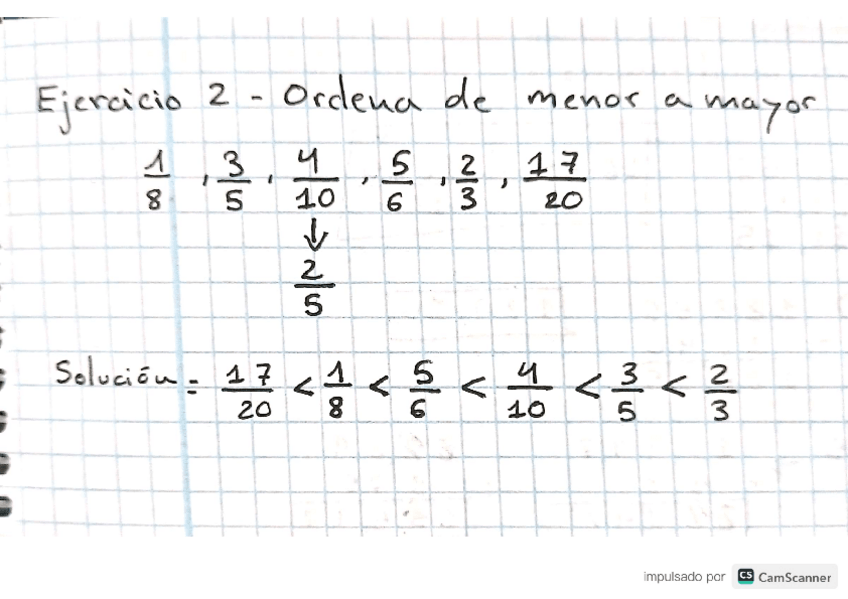 Ejercicio 2 - Ordena de menor a mayor
1/8 , 3/5 , 4/10 , 5/6 , 2/3 , 17/20
↓
2/5
Solución = 17/20 < 1/8 < 5/6 < 4/10 < 3/5 < 2/3
impulsado por CS CamScanner